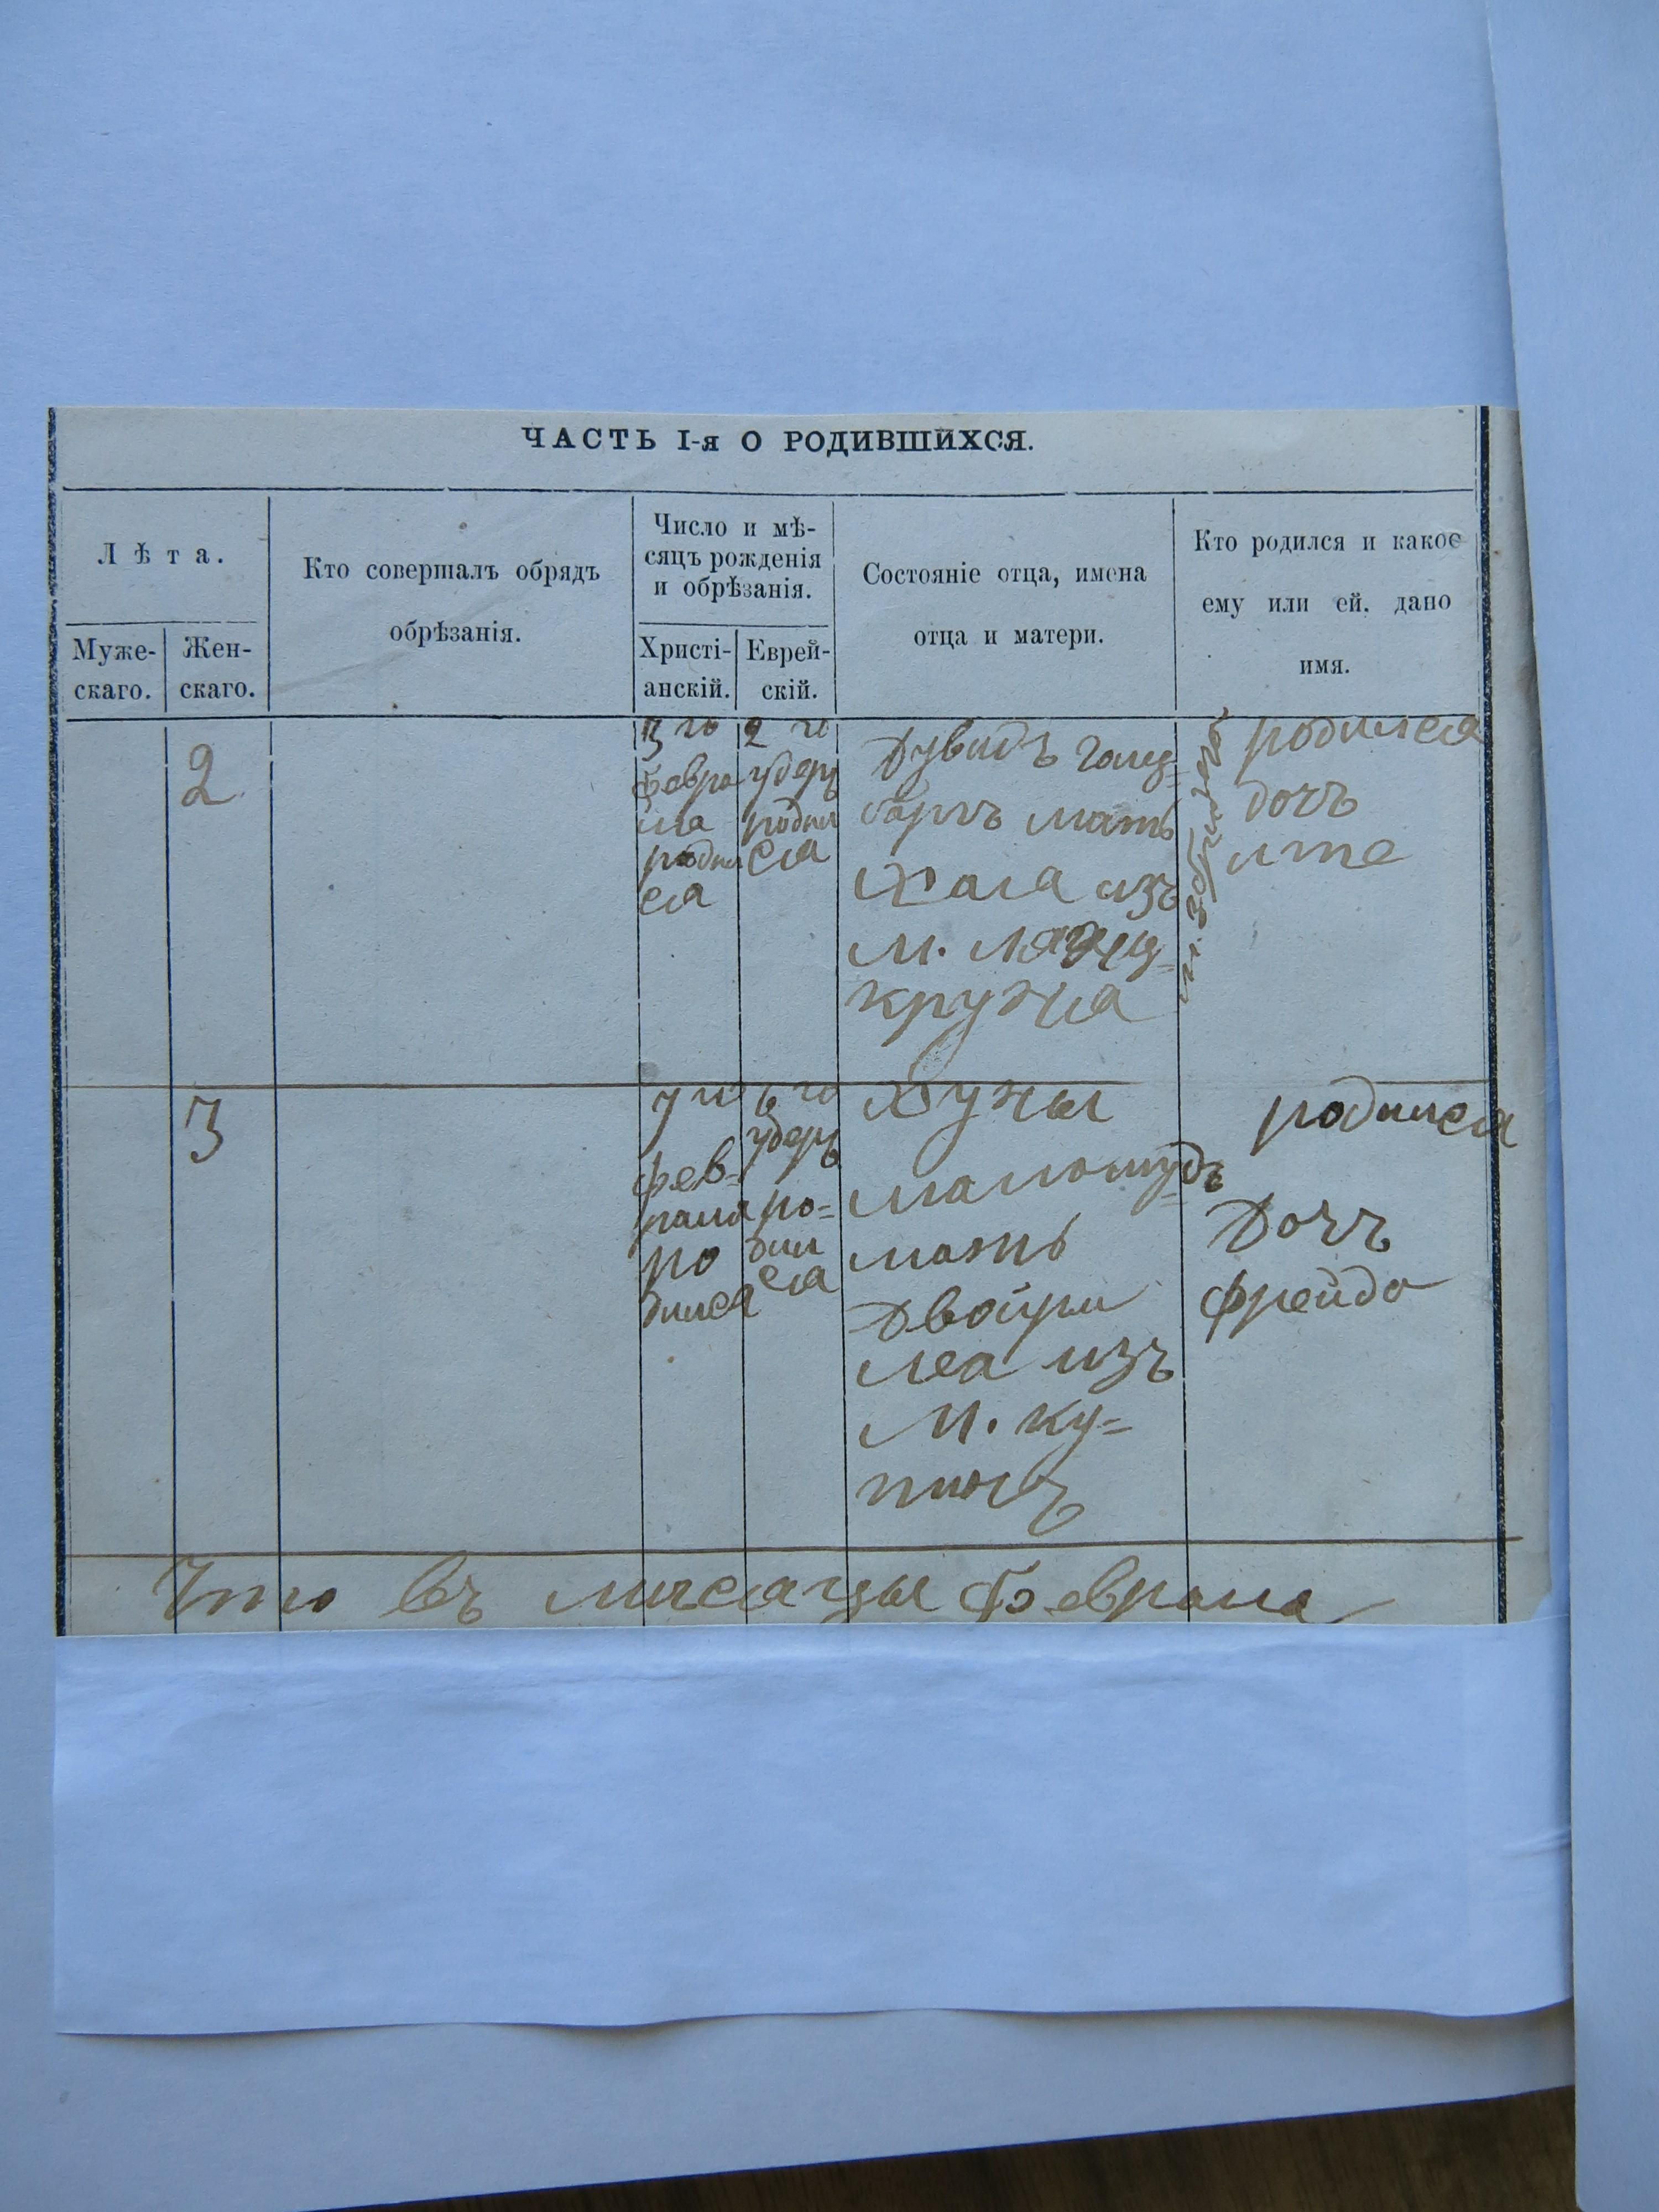 ЧАСТЬ I-я О РОДИВШИХСЯ.
Лѣта.
Муже-
скаго.
Жен-
скаго.
Кто совершалъ обрядъ
обрѣзанія.
Число и мѣ-
сяцъ рожденія
и обрѣзанія.
Христі-
анскій.
Еврей-
скій.
Состояніе отца, имена
отца и матери.
Кто родился и какое
ему или ей. дано
имя.
2
3 го
февра
ля
родил
ся
2 го
удерц
родил
ся
Дувидъ
мать
Хага изъ
м.
круна
родился
дочъ
ите
3
7 го
фев-
раля
ро
дился
6 го
удерц
ро-
дил
ся
Хуны
мать
Двойри
леа изъ
м. ку-
родился
Дочъ
фрейда
Что въ мисяцы Феврала